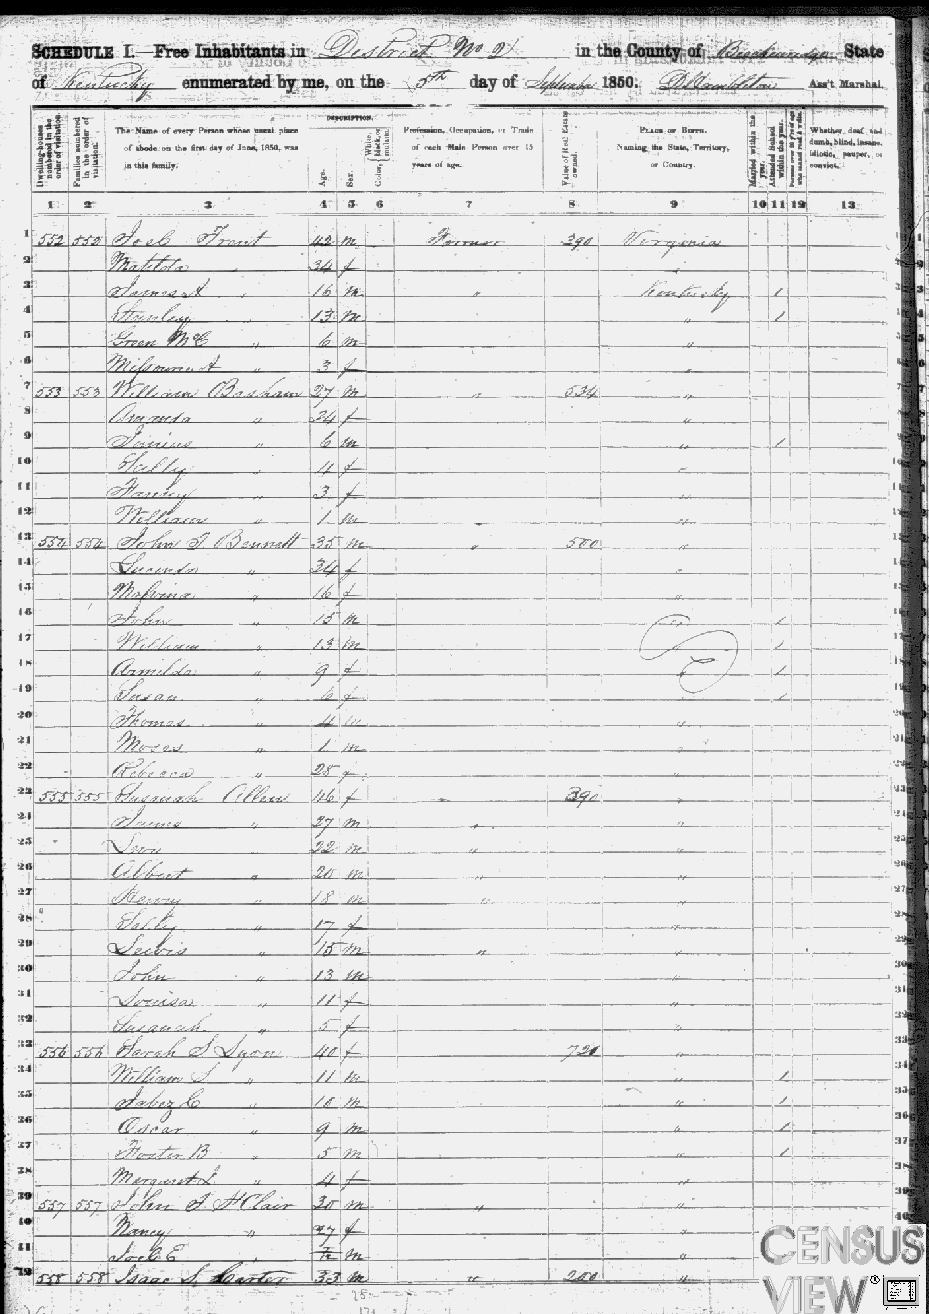 SCHEDULE I.—Free Inhabitants in District No 2 in the County of Breckenridge State
of Kentucky enumerated by me, on the 5th day of September 1850. Ass't Marshal.
DESCRIPTION.
Dwelling-houses numbered in the order of visitation.
Families numbered in the order of visitation.
The Name of every Person whose usual place of abode on the first day of June, 1850, was in this family.
Age.
Sex.
Color, { White, black, or mulatto.
Profession, Occupation, or Trade of each Male Person over 15 years of age.
Value of Real Estate owned.
PLACE OF BIRTH. Naming the State, Territory, or Country.
Married within the year.
Attended School within the year.
Persons over 20 y'rs of age who cannot read & write.
Whether deaf and dumb, blind, insane, idiotic, pauper, or convict.
1 2 3 4 5 6 7 8 9 10 11 12 13
1 552 552 Joel Frent 42 m Farmer 390 Virginia
2 Matilda " 34 f "
3 James A " 16 m " Kentucky 1
4 " 13 m " 1
5 Green McC " 6 m "
6 Missouri A " 3 f "
7 553 553 William Basham 27 m " 534 "
8 Amanda " 24 f "
9 " 6 m " 1
10 Sally " 4 f "
11 " 3 f "
12 William " 1 m "
13 554 554 John T Bennett 35 m " 500 "
14 Lucinda " 34 f "
15 Malvina " 16 f "
16 John " 15 m " 1
17 William " 13 m " 1
18 Armilda " 9 f " 1
19 Susan " 6 f " 1
20 Thomas " 4 m "
21 Moses " 1 m "
22 Rebecca " 28 f "
23 555 555 Susanah Allen 46 f 390 "
24 James " 27 m " "
25 " 22 m " "
26 Albert " 20 m " "
27 Henry " 18 m " "
28 Sally " 17 f "
29 Lewis " 15 m " "
30 John " 13 m "
31 Louisa " 11 f "
32 Susanah " 5 f "
33 556 556 Sarah S Lyon 40 f 720 "
34 William S " 11 m " 1
35 Jabez C " 10 m " 1
36 Oscar " 9 m " 1
37 Foster B " 5 m " 1
38 Margaret L " 4 f "
39 557 557 John F StClair 30 m " "
40 Nancy " 27 f "
41 Joel E " m "
42 558 558 Isaac S Carter 33 m " 200 "
CENSUS
VIEW®